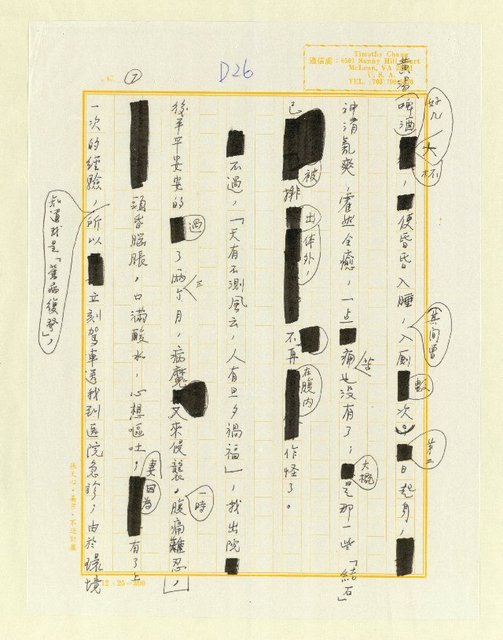 D26
Timothy Chang
McLean, VA
U. S. A.
⑦
黃湯（啤酒）好幾大杯，便昏昏入睡，入廁數次。第二日起身，
神清氣爽，霍然全癒，一點痛苦也沒有了，大概是那一些「結石」
已被排出体外，不再在腹內作怪了。
不過，「天有不測風云，人有旦夕禍福」，我出院
後平平安安的過了兩三个月，病魔又來侵襲。一時腹痛難忍，
頭昏腦脹，口滿酸水，心想嘔吐，妻因為有了上
一次的經驗，知道我是「舊病復發」，所以立刻駕車送我到医院急診，由於環境